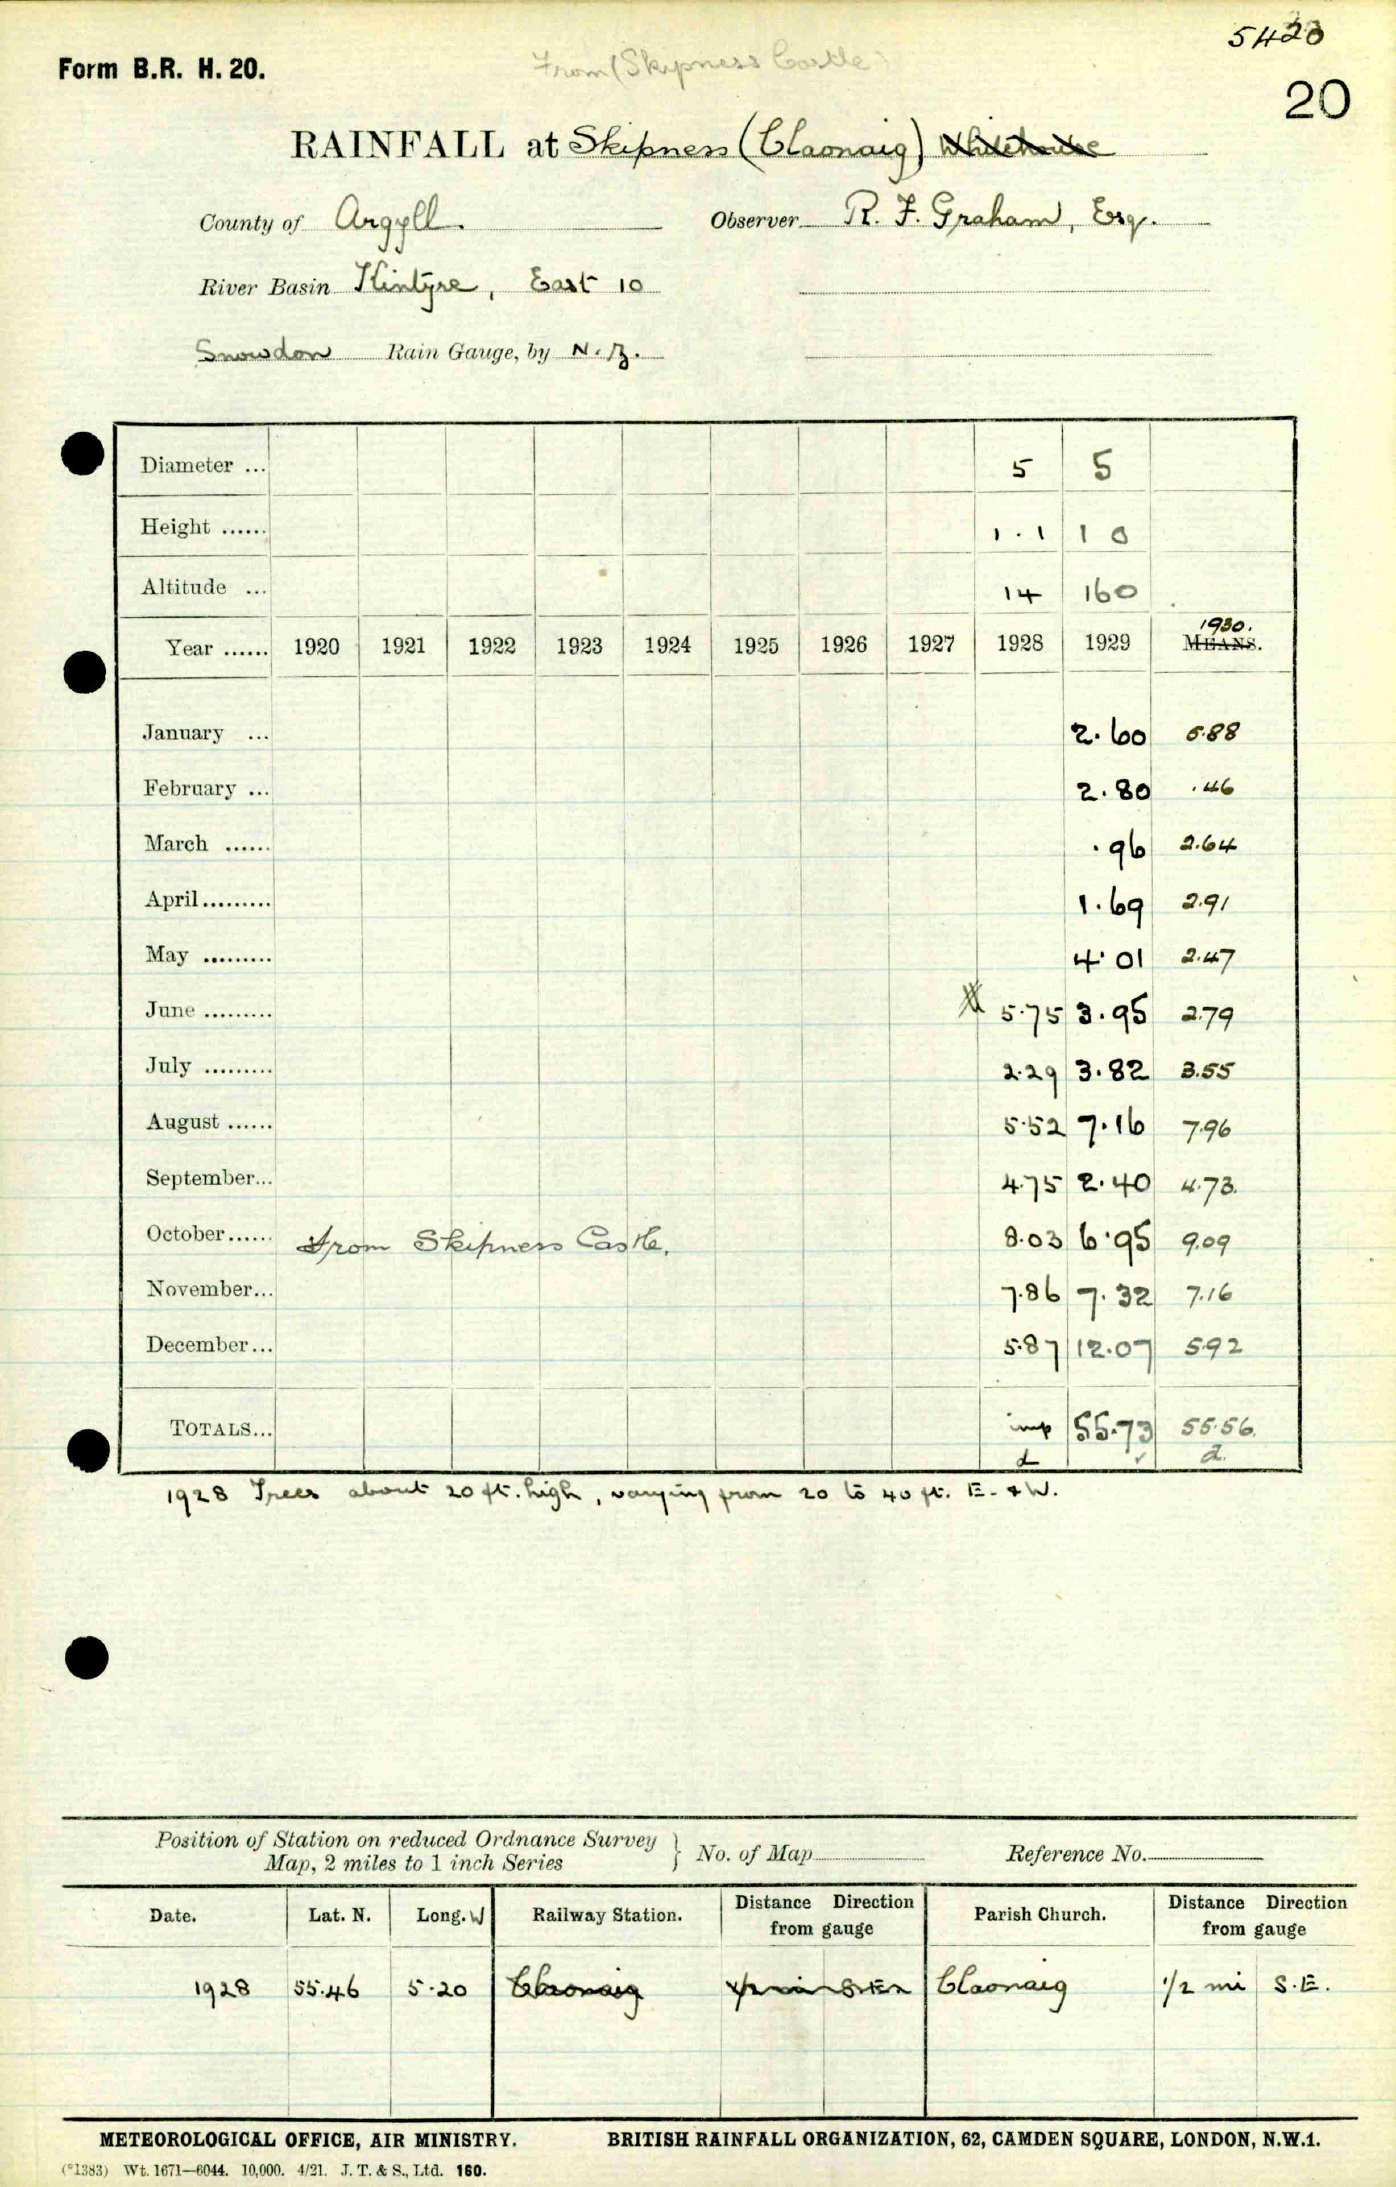 5420
From (Skipness Castle)
Form B.R. H. 20.
20
RAINFALL at Skipness (Claonaig) Whitehouse
County of Argyll. Observer R. F. Graham, Esq.
River Basin Kintyre, East 10
Snowdon Rain Gauge, by N. Z.
Diameter ... 5 5
Height ...... 1 . 1 1 0
Altitude ... 14 160
Year ...... 1920 1921 1922 1923 1924 1925 1926 1927 1928 1929 1930. MEANS.
January ... 2.60 5.88
February ... 2.80 .46
March ...... .96 2.64
April ......... 1.69 2.91
May ......... 4.01 2.47
June ......... 5.75 3.95 2.79
July ......... 2.29 3.82 3.55
August ...... 5.52 7.16 7.96
September... 4.75 2.40 4.73.
October...... From Skipness Castle. 8.03 6.95 9.09
November... 7.86 7.32 7.16
December... 5.87 12.07 5.92
TOTALS... imp 55.73 55.56.
d ✓ d.
1928 Trees about 20 ft. high, varying from 20 to 40 ft. E. & W.
Position of Station on reduced Ordnance Survey
Map, 2 miles to 1 inch Series } No. of Map Reference No.
Date. Lat. N. Long. W Railway Station. Distance Direction from gauge Parish Church. Distance Direction from gauge
1928 55.46 5.20 Claonaig 1/2 mi Claonaig 1/2 mi S.E.
METEOROLOGICAL OFFICE, AIR MINISTRY. BRITISH RAINFALL ORGANIZATION, 62, CAMDEN SQUARE, LONDON, N.W.1.
(*1383) Wt. 1671—6044. 10,000. 4/21. J. T. & S., Ltd. 160.